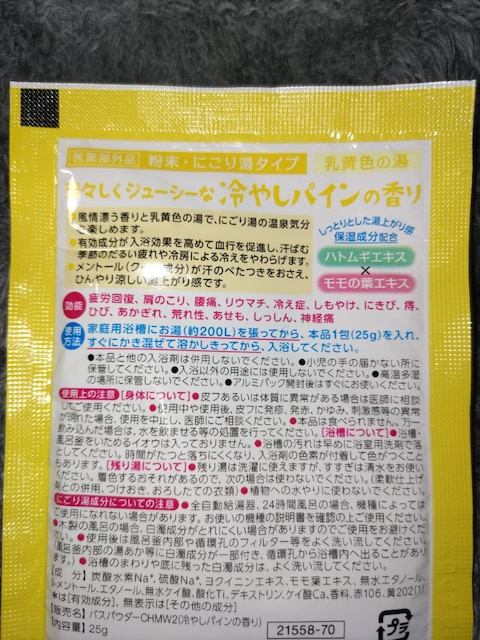 医薬部外品 粉末・にごり湯タイプ 乳黄色の湯
々しくジューシーな 冷やしパインの香り
●風情漂う香りと乳黄色の湯で、にごり湯の温泉気分を楽しめます。
●有効成分が入浴効果を高めて血行を促進し、汗ばむ季節のだるい疲れや冷房による冷えをやわらげます。
●メントール(クール成分)が汗のべたつきをおさえ、ひんやり涼しい湯上がり感です。
しっとりとした湯上がり感
保湿成分配合
ハトムギエキス
×
モモの葉エキス
効能 疲労回復、肩のこり、腰痛、リウマチ、冷え症、しもやけ、にきび、痔、
ひび、あかぎれ、荒れ性、あせも、しっしん、神経痛
使用方法 家庭用浴槽にお湯(約200L)を張ってから、本品1包(25g)を入れ、
すぐにかき混ぜて溶かしきってから、入浴してください。
●本品と他の入浴剤は併用しないでください。●小児の手の届かない所に
保管してください。●入浴以外の用途には使用しないでください。●高温多湿
の場所に保管しないでください。●アルミパック開封後はすぐにお使いください。
使用上の注意 [身体について]●皮フあるいは体質に異常がある場合は医師に相談
してご使用ください。●使用中や使用後、皮フに発疹、発赤、かゆみ、刺激感等の異常
が現れた場合、使用を中止し、医師にご相談ください。●本品は食べられません。万一
飲み込んだ場合は、水を飲ませる等の処置を行ってください。[浴槽について]●浴槧・
風呂釜をいためるイオウは入っておりません。●浴槽の汚れは早めに浴室用洗剤で落
としてください。時間がたつと落ちにくくなり、入浴剤の色素が付着して色がつくこと
もあります。[残り湯について]●残り湯は洗濯に使えますが、すすぎは清水をお使い
ください。着色するおそれがあるので、次の場合は使わないでください。(柔軟仕上げ
剤との併用、つけおき、おろしたての衣類)●植物への水やりに使わないでください。
にごり湯成分についての注意 ●全自動給湯器、24時間風呂の場合、機種によっては
ご使用になれない場合があります。お使いの機種の説明書を確認の上ご使用ください。
●木製の風呂の場合、白濁成分がとれにくい場合がありますのでご使用をお避けくださ
い。●使用後は風呂釜内部や循環孔のフィルター等をよく洗い流してください。
(風呂釜内部の湯あか等に白濁成分が一部付き、循環孔から浴槽内へ出ることがあり
ます。)●浴槽のまわりや底に残った白濁成分は、よく洗い流してください。
【成 分】炭酸水素Na*、硫酸Na*、ヨクイニンエキス、モモ葉エキス、無水エタノール、
ℓ-メントール、エタノール、無水ケイ酸、酸化Ti、デキストリン、ケイ酸Ca、香料、赤106、黄202(1)
*は[有効成分]、無表示は[その他の成分]
【販売名】バスパウダーCHMW2(冷やしパインの香り)
【内容量】25g
21558-70
プラ